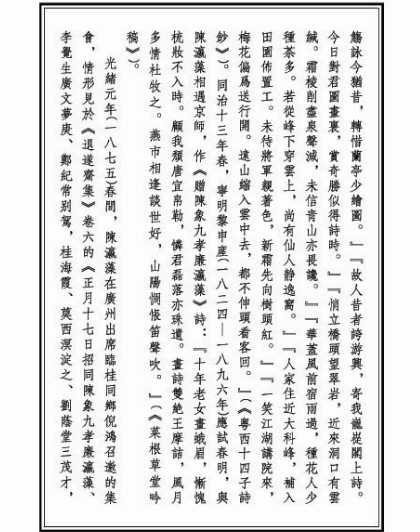 觴詠今猶昔，轉惜蘭亭少繪圖。』『故人昔者誇游興，寄我巃嵷閣上詩。
今日對君圖畫裏，賞奇勝似得詩時。』『悄立橋頭望翠岩，近來洞口有雲
緘。霜稜削盡泉聲滅，未信青山亦長讒。』『華蓋風前宿雨過，種花人少
種茶多。若從峰下穿雲上，尚有仙人靜逸窩。』『人家住近大科峰，補入
田園佈置工。未待將軍親著色，新霜先向樹頭紅。』『一笑江湖講院來，
梅花偏爲送行開。遠山縮入雲中去，都不伸頭看客回。』（《粵西十四子詩
鈔》）。同治十三年春，寧明黎申産（一八二四—一八九六年）應試春明，與
陳瀛藻相遇京師，作《贈陳象九孝廉瀛藻》詩：『十年老女畫蛾眉，慚愧
梳妝不入時。顧我頹唐宜帛勒，憐君磊落亦珠遺。畫詩雙絶王摩詰，風月
多情杜牧之。燕市相逢談世好，山陽惆悵笛聲吹。』（《菜根草堂吟
稿》）。
光緒元年（一八七五）春間，陳瀛藻在廣州出席臨桂同鄉倪鴻召邀的集
會，情形見於《退遂齋集》卷六的《正月十七日招同陳象九孝廉瀛藻、
李覺生廣文夢庚、鄭紀常别駕，桂海霞、莫西溟淀之、劉蔭堂三茂才，